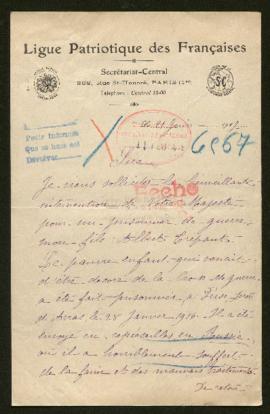 Ligue Patriotique des Françaises
Secrétariat-Central
368, Rue St-Honoré, PARIS (1er)
Téléphone : Central 13-00
Pedir informes
Que se hace así
Devolver
6967
Sire
Je viens solliciter la bienveillante
intervention de Votre Majesté
pour un prisonnier de guerre
mon fils Albert
Ce pauvre enfant qui venait
d'être décoré de la Croix de guerre
a été fait prisonnier à
d'Arras le 28 Janvier 1916. Il a été
envoyé en représailles en Russie
où il a horriblement souffert
de la faim et des mauvais traitements
De retour